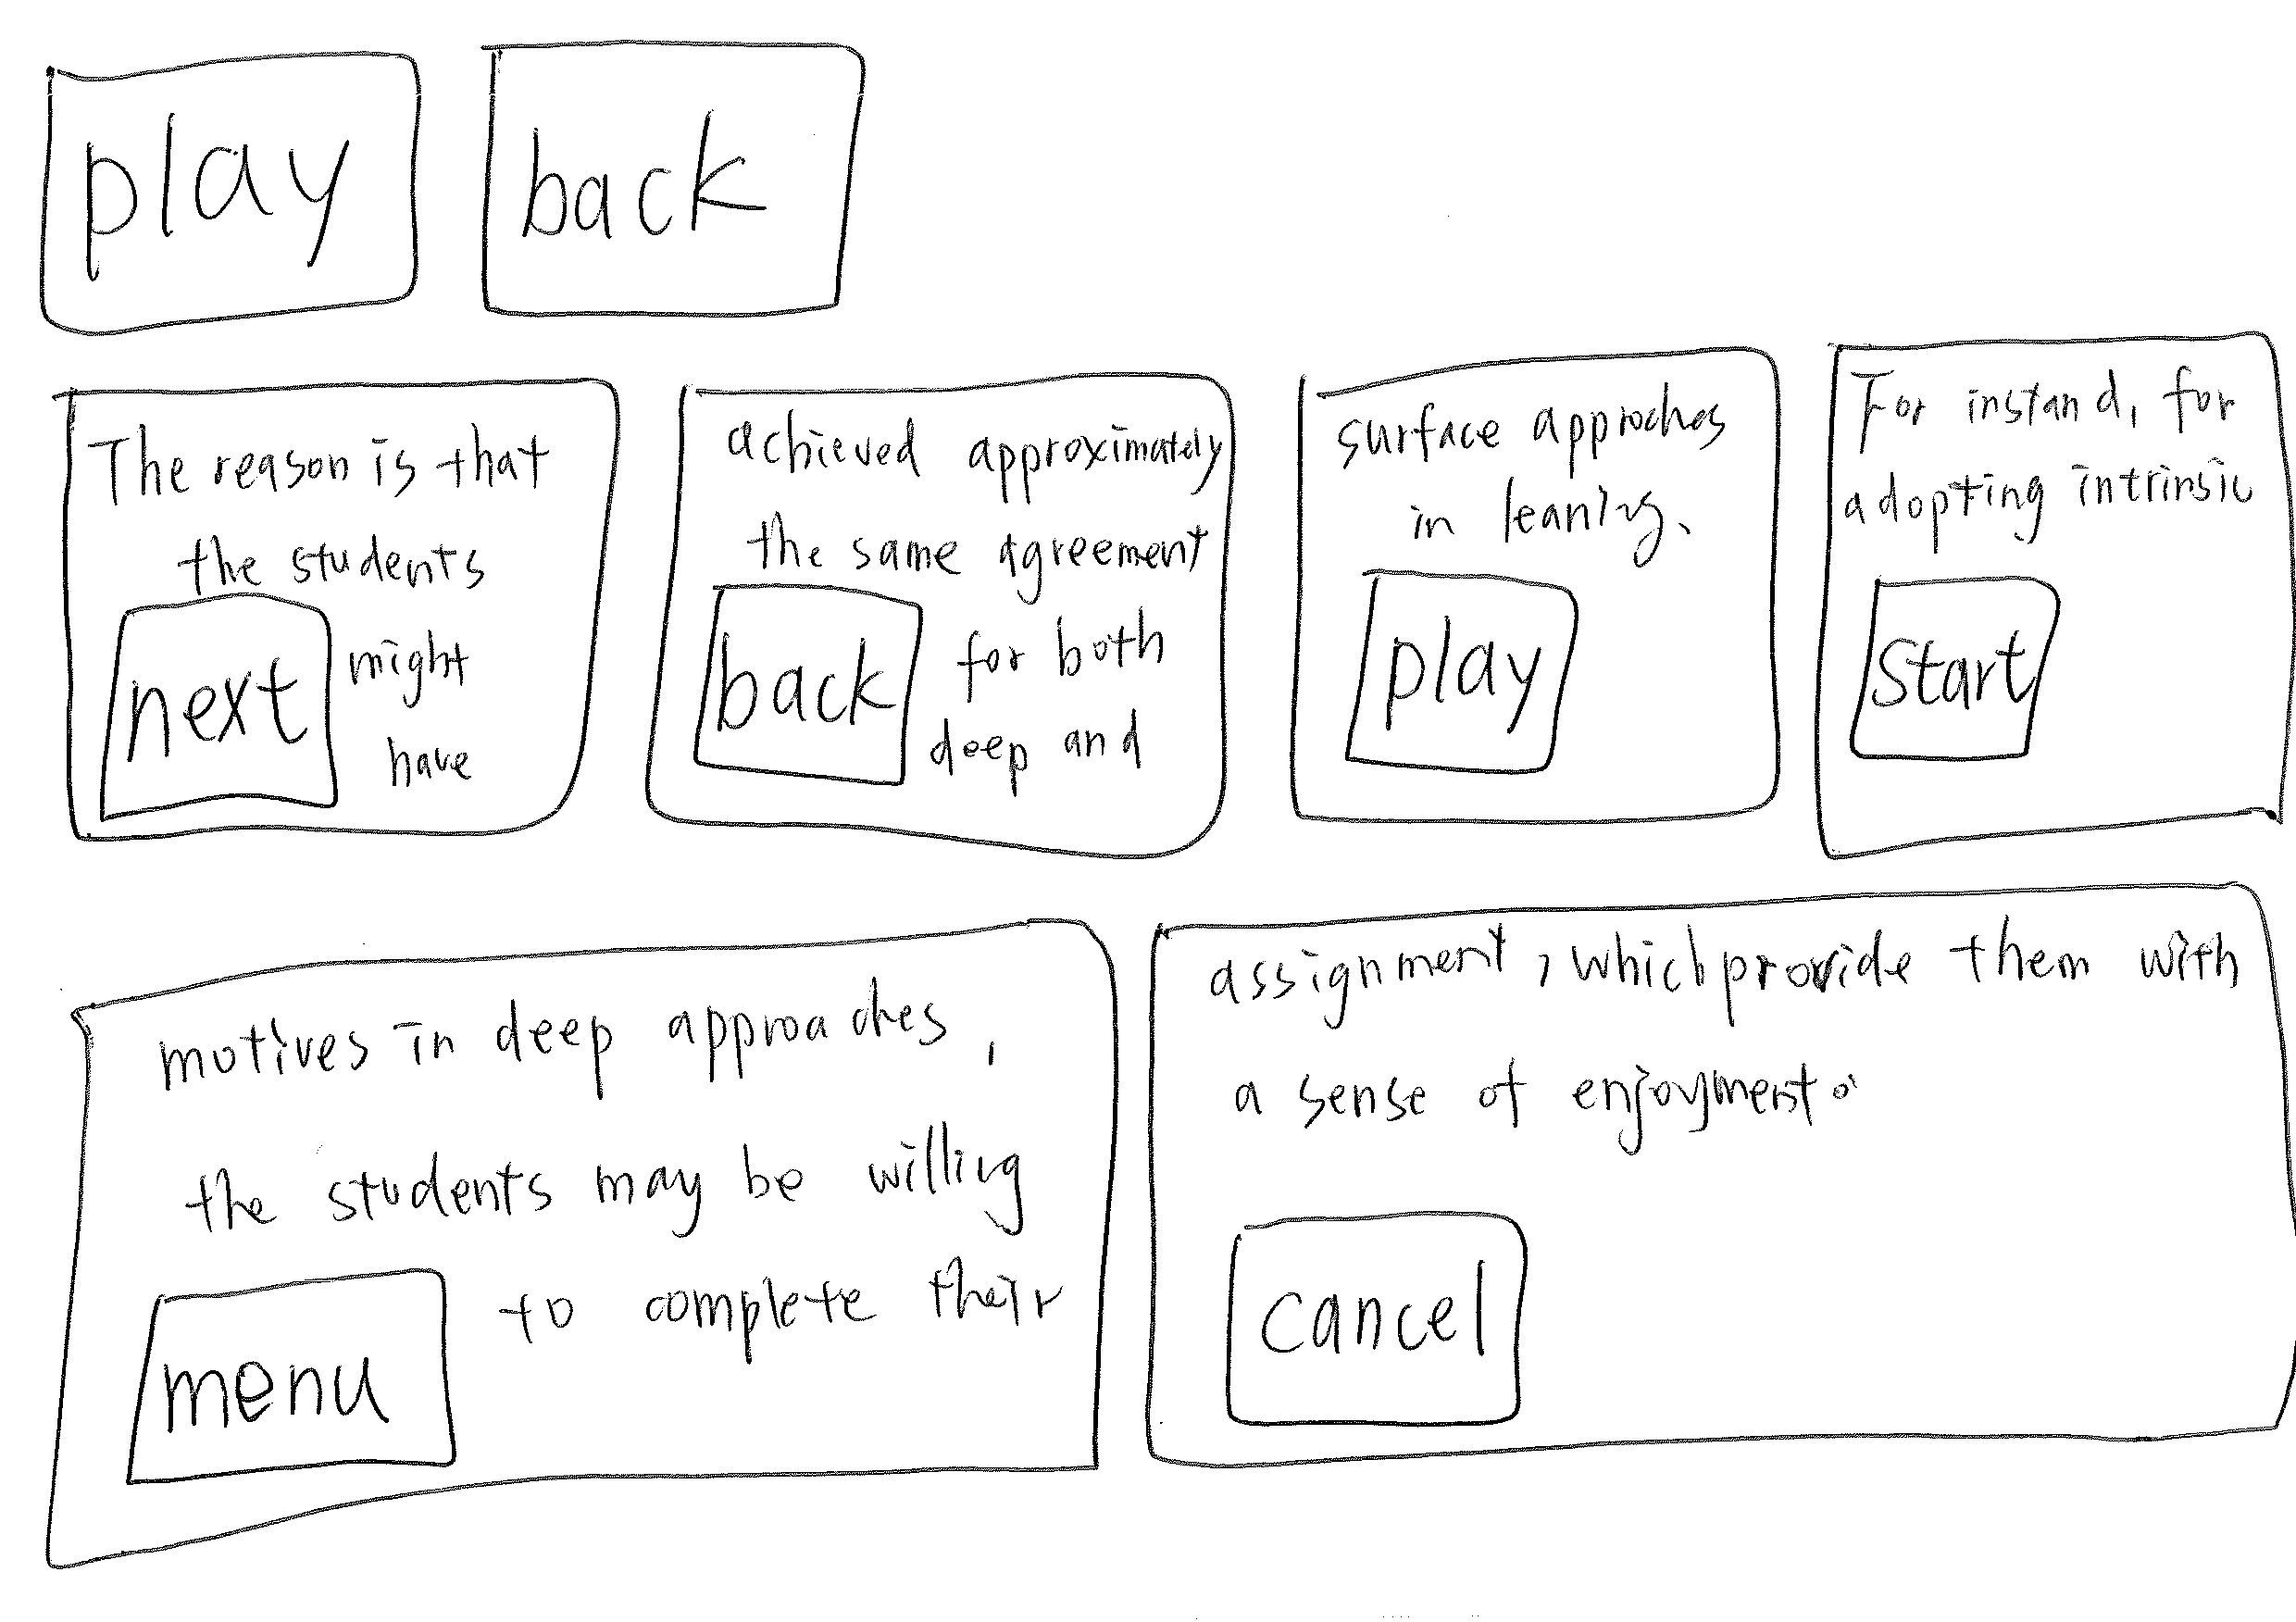 play
back
The reason is that
the students
next
might
have
achieved approximately
the same agreement
back
for both
deep and
surface approches
in leaning.
play
For instand, for
adopting intrinsic
Start
motives in deep approaches,
the students may be willing
to complete their
menu
assignment, which provide them with
a sense of enjoyment.
cancel